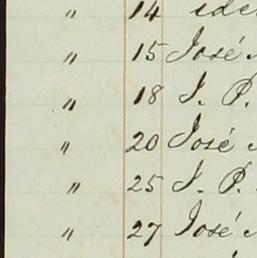 " 14 ide
" 15 José
" 18 J. P.
" 20 José
" 25 J. P.
" 27 José